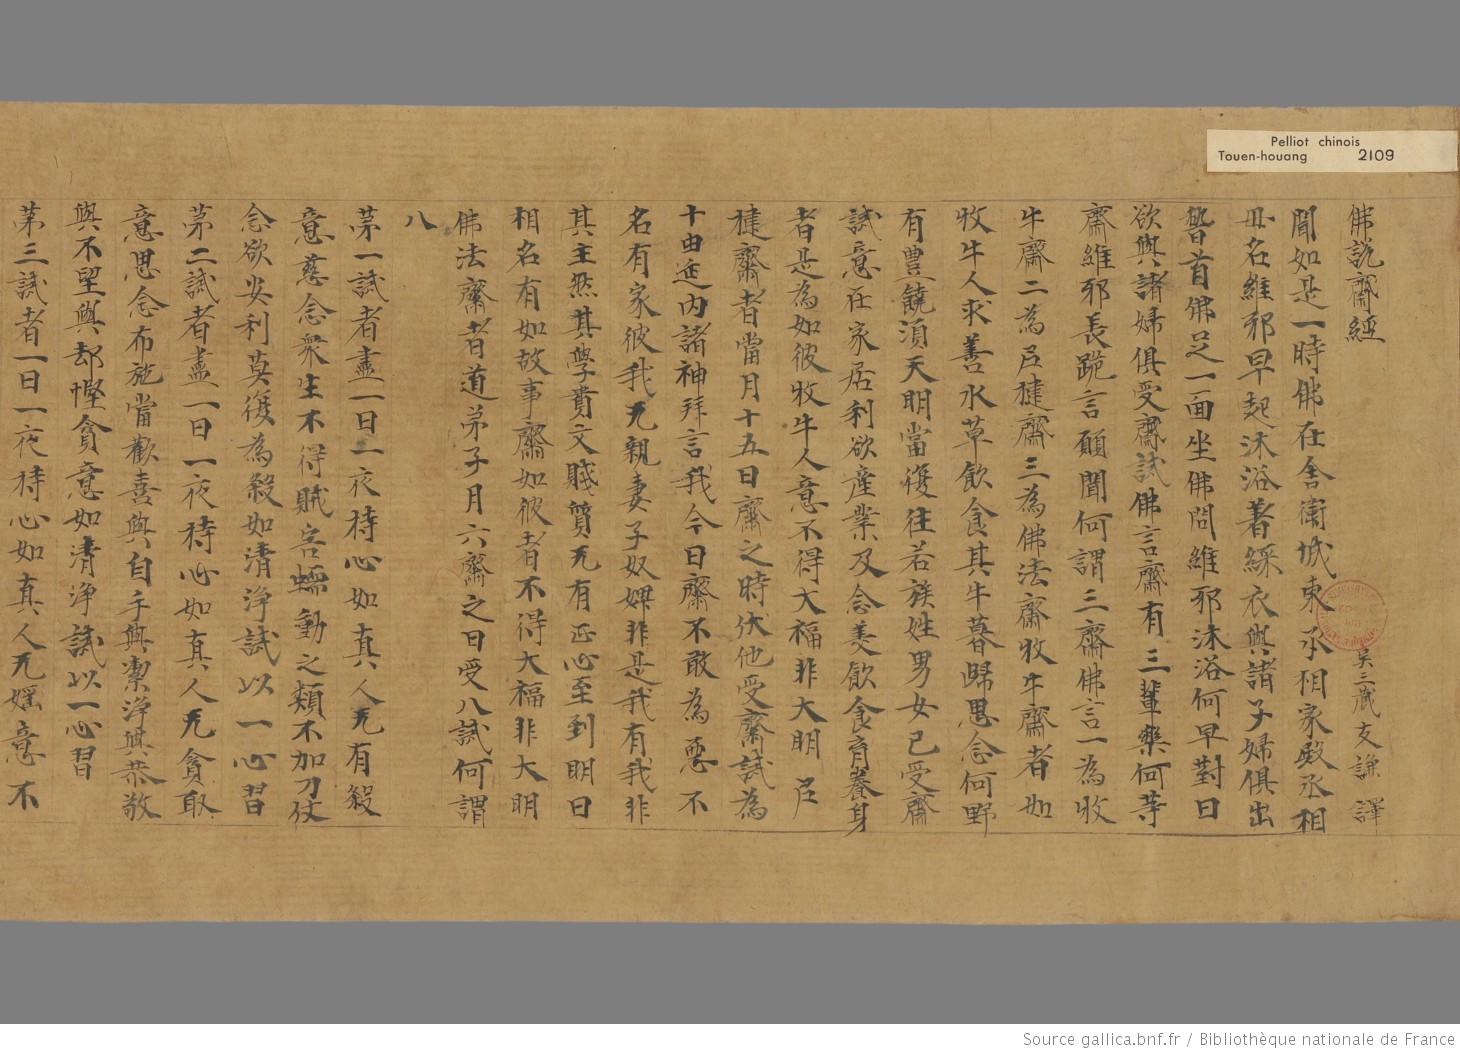 Pelliot chinois
Touen-houang 2109
佛說齋經 吳三藏支謙 譯
聞如是一時佛在舍衛城東丞相家殿丞相
母名維耶早起沐浴著綵衣與諸子婦俱出
稽首佛足一面坐佛問維耶沐浴何早對曰
欲與諸婦俱受齋試佛言齋有三輩樂何等
齋維耶長跪言願聞何謂三齋佛言一為牧
牛齋二為尼揵齋三為佛法齋牧牛齋者如
牧牛人求善水草飲食其牛暮歸思念何野
有豊饒須天明當復往若族姓男女已受齋
試意在家居利欲產業及念美飲食育養身
者是為如彼牧牛人意不得大福非大明尼
揵齋者當月十五日齋之時伏他受齋試為
十由延內諸神拜言我今日齋不敢為惡不
名有家彼我无親妻子奴婢非是我有我非
其主然其學貴文賤質无有正心至到明日
相名有如故事齋如彼者不得大福非大明
佛法齋者道弟子月六齋之日受八試何謂
八
苐一試者盡一日一夜持心如真人无有殺
意慈念衆生不得賊害蠕動之類不加刀仗
念欲安利莫復為殺如清淨試以一心習
苐二試者盡一日一夜持心如真人无貪取
意思念布施當歡喜與自手與潔淨與恭敬
與不望與却慳貪意如清淨試以一心習
苐三試者一日一夜持心如真人无婬意不
Source gallica.bnf.fr / Bibliothèque nationale de France